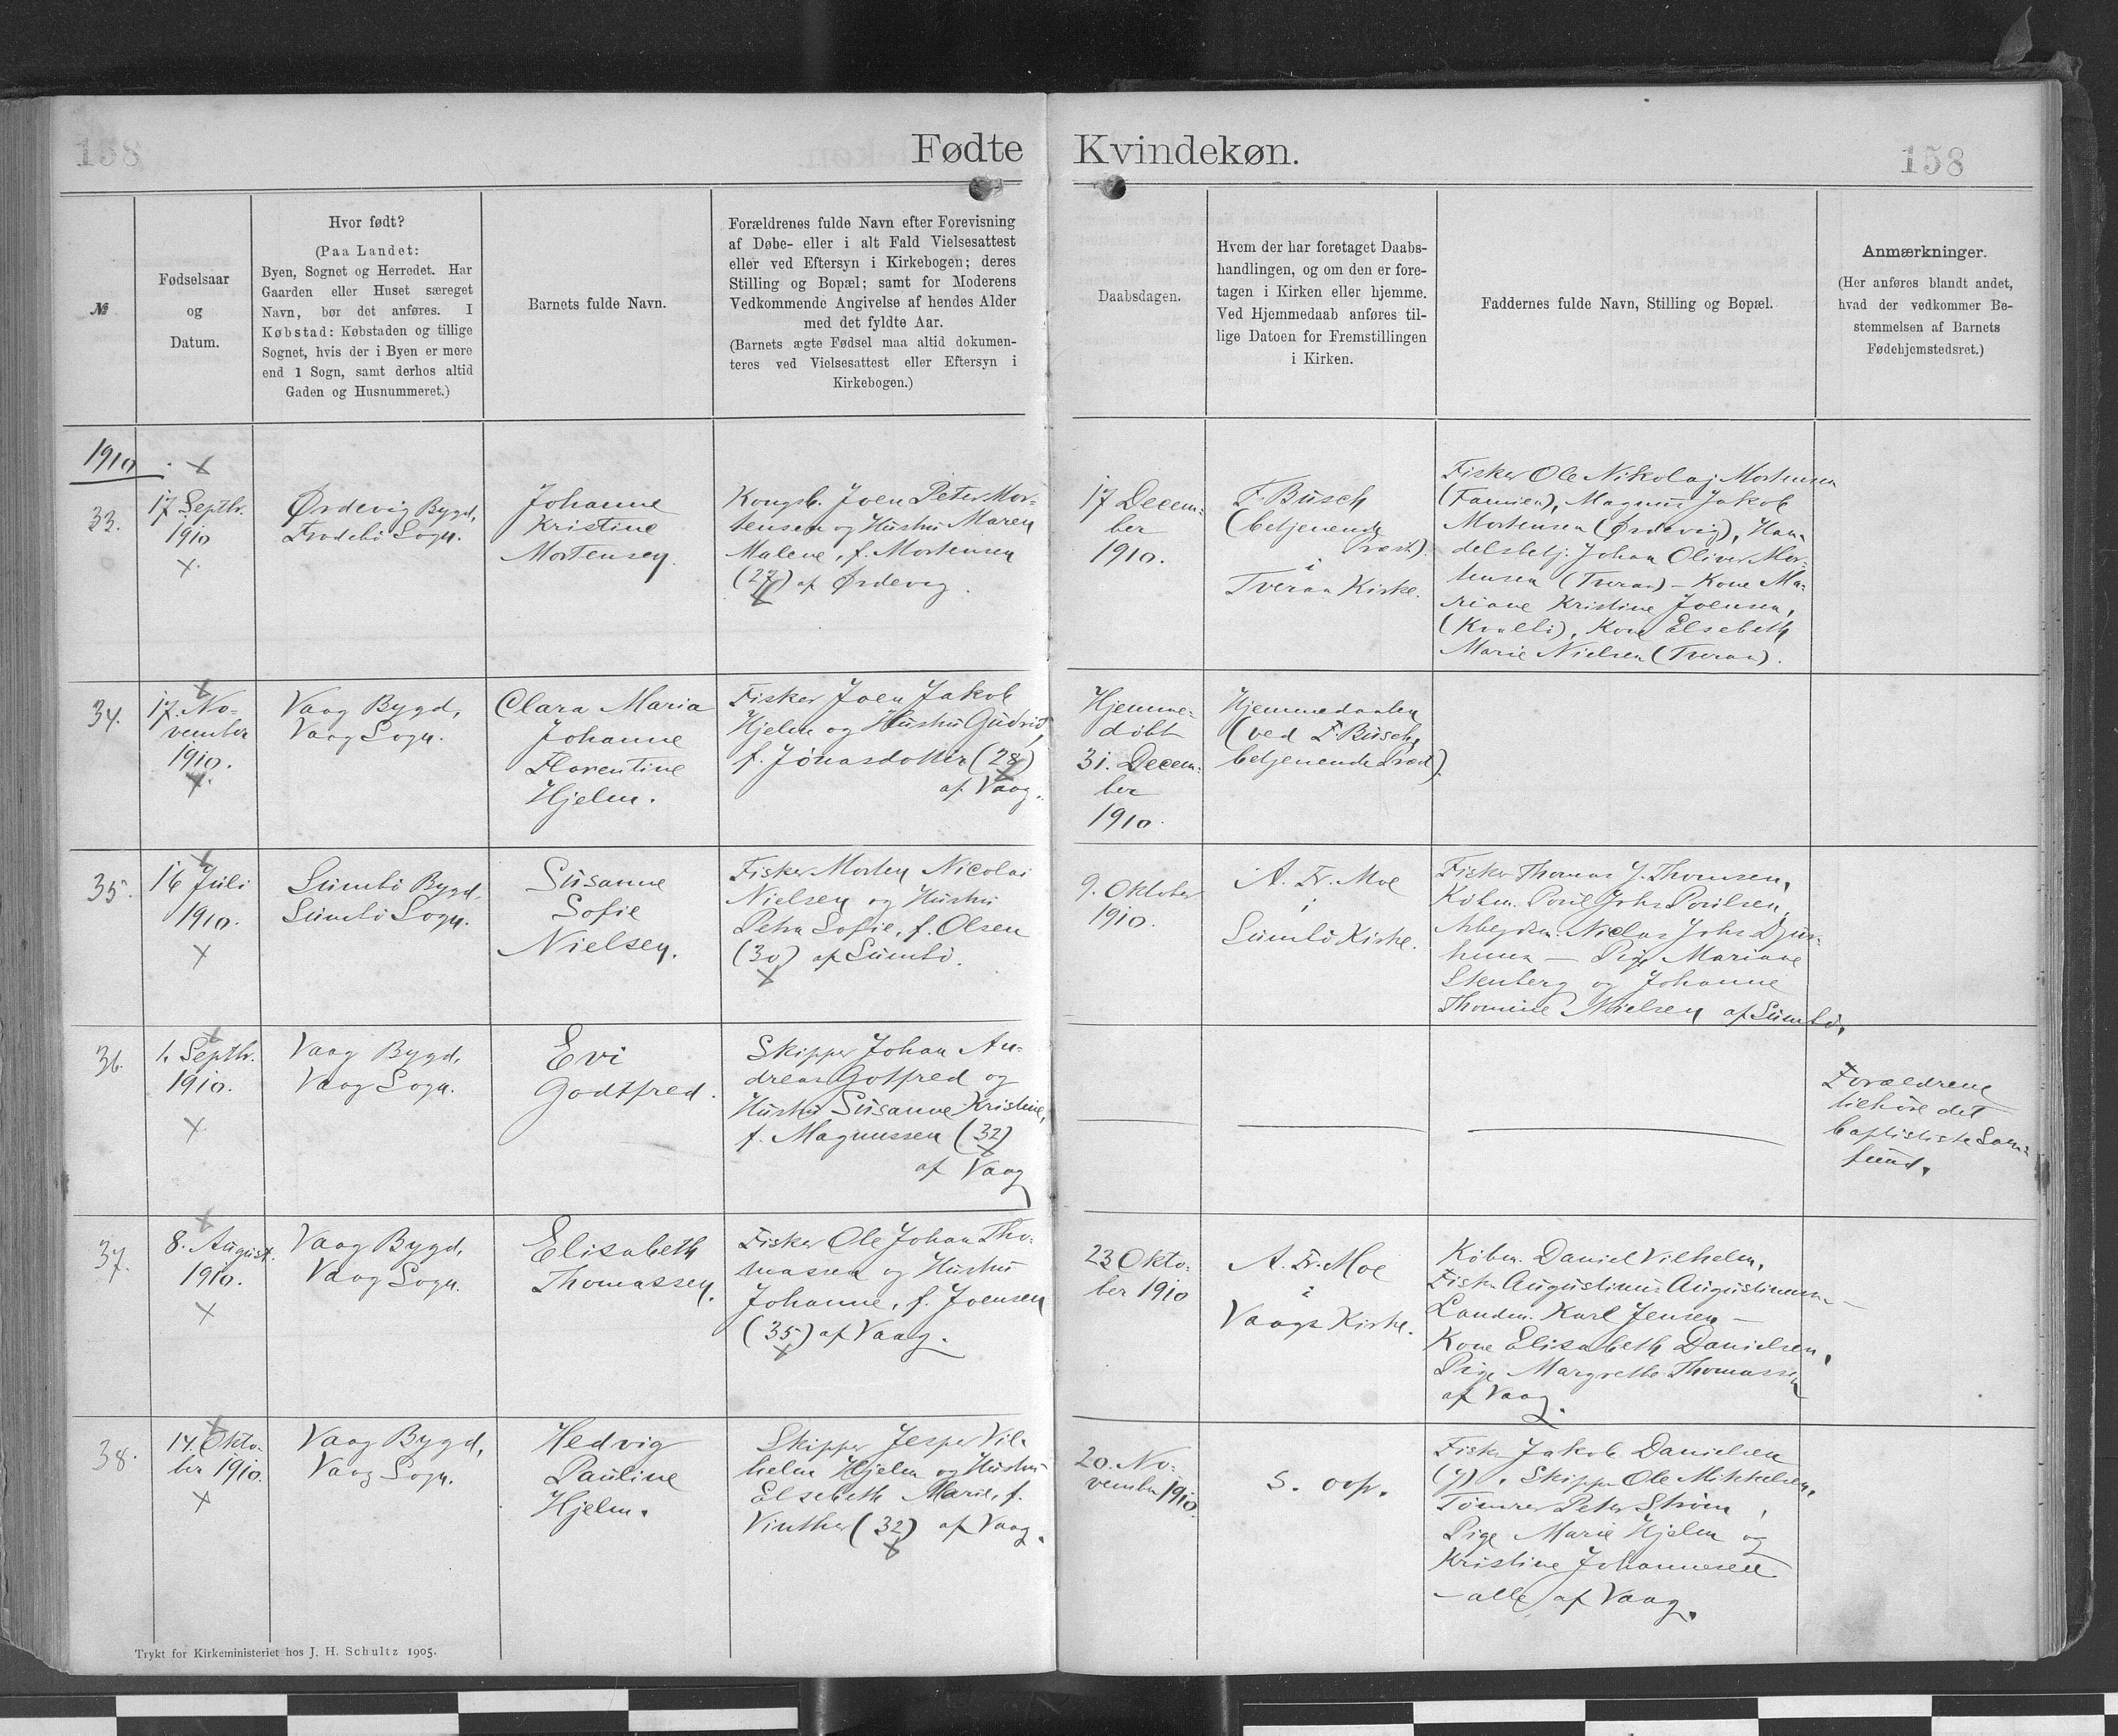 158
Fødte
Kvindekøn.
158
№
Fødselsaar
og
Datum.
Hvor født?
(Paa Landet:
Byen, Sognet og Herredet. Har
Gaarden eller Huset særeget
Navn, bør det anføres. I
Købstad: Købstaden og tillige
Sognet, hvis der i Byen er mere
end 1 Sogn, samt derhos altid
Gaden og Husnummeret.)
Barnets fulde Navn.
Forældrenes fulde Navn efter Forevisning
af Døbe- eller i alt Fald Vielsesattest
eller ved Eftersyn i Kirkebogen; deres
Stilling og Bopæl; samt for Moderens
Vedkommende Angivelse af hendes Alder
med det fyldte Aar.
(Barnets ægte Fødsel maa altid dokumen-
teres ved Vielsesattest eller Eftersyn i
Kirkebogen.)
Daabsdagen.
Hvem der har foretaget Daabs-
handlingen, og om den er fore-
tagen i Kirken eller hjemme.
Ved Hjemmedaab anføres til-
lige Datoen for Fremstillingen
i Kirken.
Faddernes fulde Navn, Stilling og Bopæl.
Anmærkninger.
(Her anføres blandt andet,
hvad der vedkommer Be-
stemmelsen af Barnets
Fødehjemstedsret.)
1910
33.
17 Septbr.
1910
Ørdevig Bygd,
Frodebö Sogn.
Johanne
Kristine
Mortensen.
Kongsb. Joen Peter Mor-
tensen og Hustru Maren
Malene, f. Mortensen
(27) af Ørdevig.
17 Decem-
ber
1910.
F. Busch
(betjenende
Præst)
i
Tveraa Kirke.
Fisker Ole Nikolaj Mortensen
(Famien), Magnus Jakob
Mortensen (Ørdevig), Han-
delsbetj. Johan Oliver Mor-
tensen (Tveraa) – Kone Ma-
riane Kristine Joensen,
(Kvalbö), Kone Elsebeth
Marie Nielsen (Tveraa).
34.
17. No-
vember
1910.
Vaag Bygd,
Vaag Sogn.
Clara Maria
Johanne
Florentine
Hjelm.
Fisker Joen Jakob
Hjelm og Hustru Gudrid,
f. Jónasdotter (28)
af Vaag.
Hjemme-
døbt
31. Decem-
ber
1910.
Hjemmedaaben
(ved F. Busch,
betjenende Præst).
35.
16 Juli
1910.
Sumbö Bygd,
Sumbö Sogn.
Susanne
Sofie
Nielsen.
Fisker Morten Nicolai
Nielsen og Hustru
Petra Sofie, f. Olsen
(30) af Sumbö.
9. Oktober
1910.
A. Fr. Moe
i
Sumbö Kirke.
Fisker Thomas J. Thomsen,
Köbm. Poul Johs Poulsen,
Arbejdsm. Niclas Johs Djur-
huus – Pige Mariane
Stenberg og Johanne
Thomine Nielsen af Sumbö.
36.
1. Septbr.
1910.
Vaag Bygd,
Vaag Sogn.
Evi
Godtfred.
Skipper Johan An-
dreas Gotfred og
Hustru Susanne Kristine,
f. Magnussen (32)
af Vaag
Forældrene
tilhöre det
baptistiske Sam-
fund.
37.
8. August.
1910.
Vaag Bygd,
Vaag Sogn.
Elisabeth
Thomassen.
Fisker Ole Johan Tho-
massen og Hustru
Johanne, f. Joensen
(35) af Vaag.
23 Okto-
ber 1910
A. Fr. Moe
i
Vaags Kirke.
Köbm. Daniel Vilhelm,
Fisker Augustinus Augustinussen
Landm. Karl Jensen –
Kone Elisabeth Danielsen,
Pige Margrethe Thomassen
af Vaag.
38.
14. Okto-
ber 1910.
Vaag Bygd,
Vaag Sogn.
Hedvig
Pauline
Hjelm.
Skipper Jesper Vil-
helm Hjelm og Hustru
Elsebeth Marie, f.
Vinther (32) af Vaag.
20. No-
vember 1910.
s. ovf.
Fisker Jakob Danielsen
(y). Skipper Ole Mikkelsen,
Tömrer Peter Ström,
Pige Marie Hjelm og
Kristine Johannesen
– alle af Vaag.
Trykt for Kirkeministeriet hos J. H. Schultz 1905.